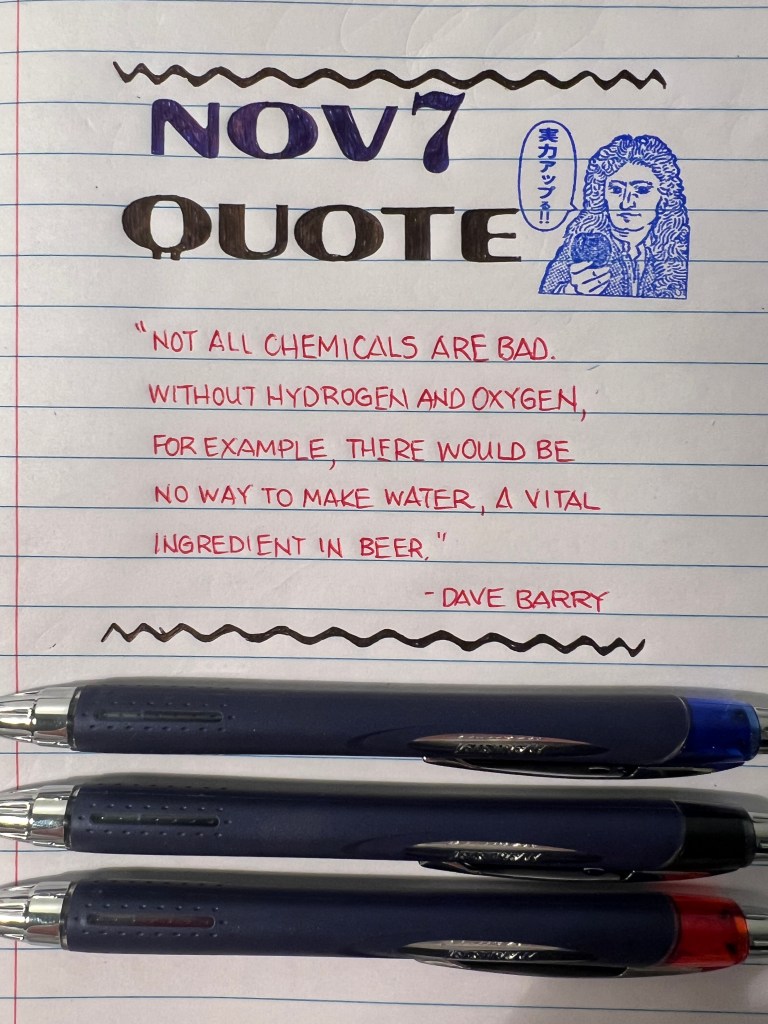 NOV 7
QUOTE
実力アップる!!
"NOT ALL CHEMICALS ARE BAD.
WITHOUT HYDROGEN AND OXYGEN,
FOR EXAMPLE, THERE WOULD BE
NO WAY TO MAKE WATER, A VITAL
INGREDIENT IN BEER."
- DAVE BARRY